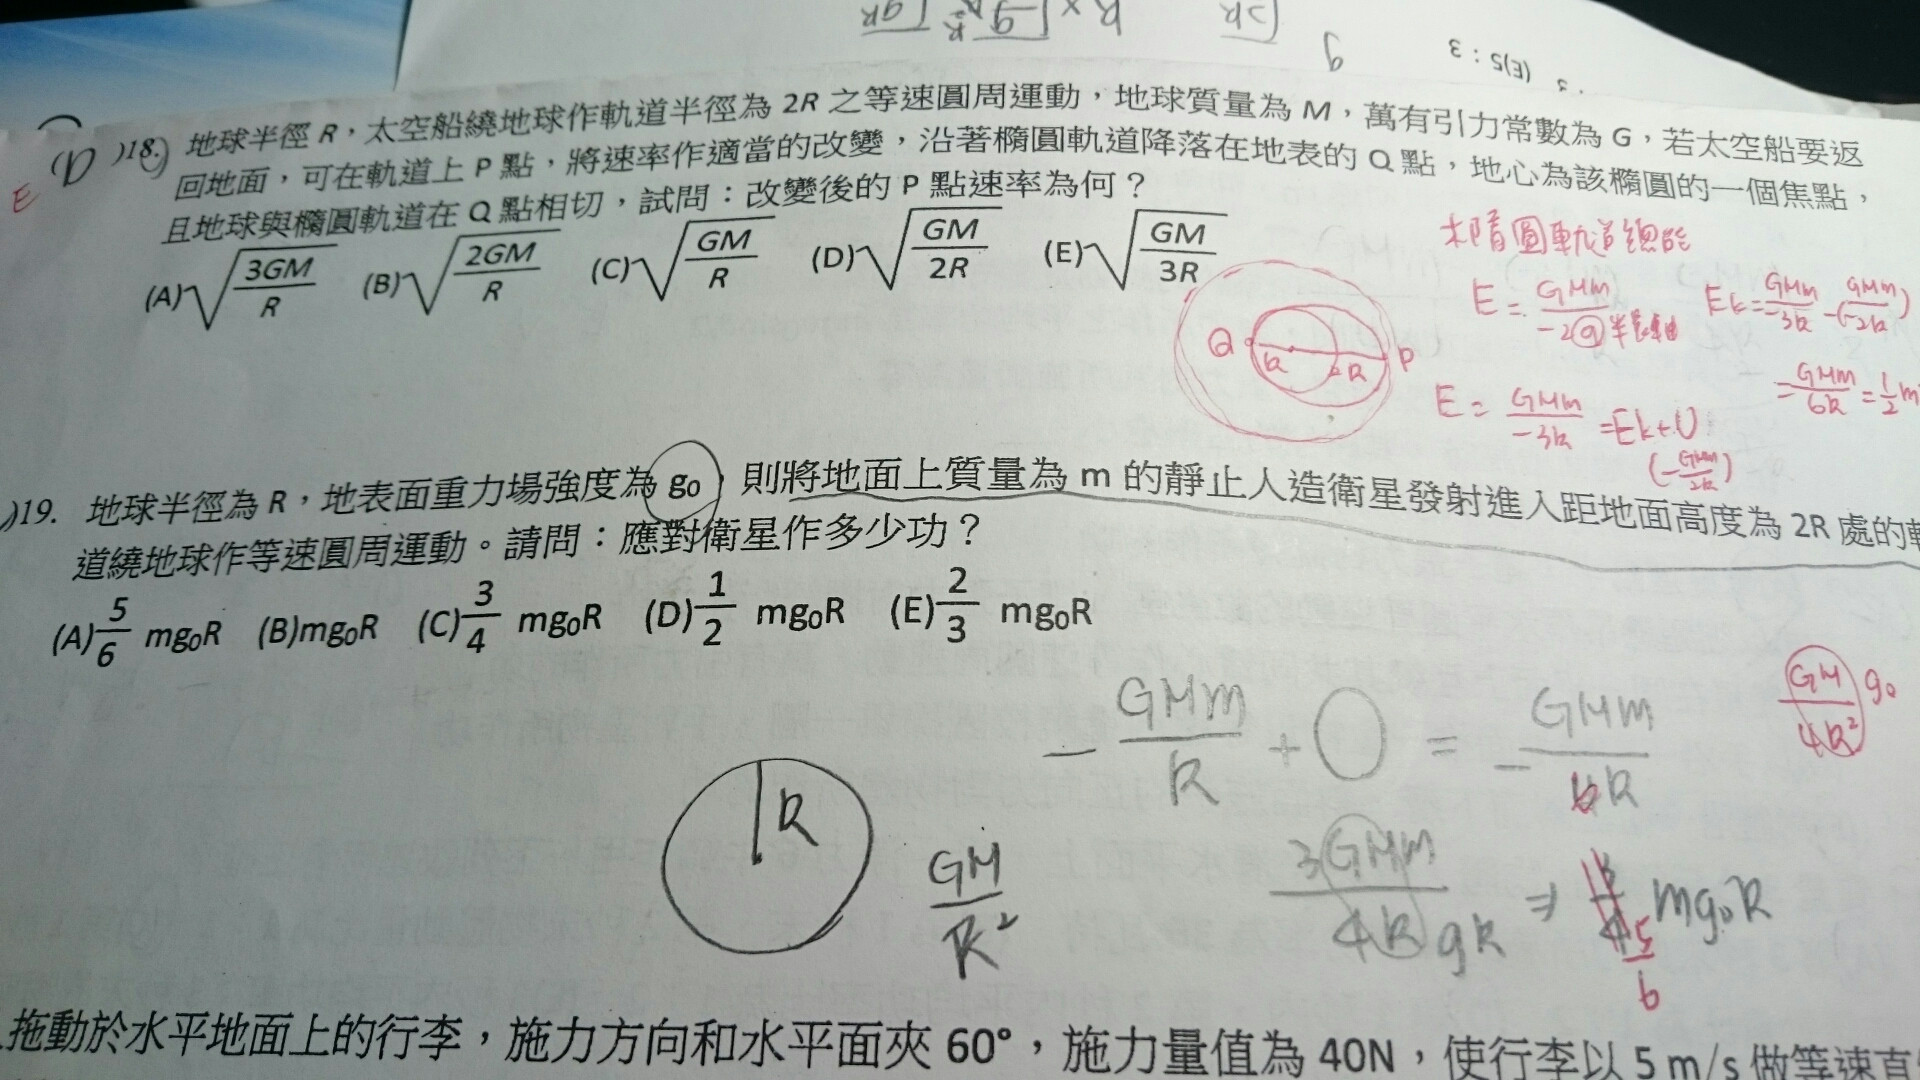 (E)S : 3
(D )18. 地球半徑 R，太空船繞地球作軌道半徑為 2R 之等速圓周運動，地球質量為 M，萬有引力常數為 G，若太空船要返
E
回地面，可在軌道上 P 點，將速率作適當的改變，沿著橢圓軌道降落在地表的 Q 點，地心為該橢圓的一個焦點，
且地球與橢圓軌道在 Q 點相切，試問：改變後的 P 點速率為何？
(A)√(3GM/R) (B)√(2GM/R) (C)√(GM/R) (D)√(GM/2R) (E)√(GM/3R)
圓軌道總能
E = GMm/-2a 半長軸
Ek = GMm/-3R - (GMm/-2R)
Q R R P
E = GMm/-3R = Ek+U
(-GMm/2R)
-GMm/6R = 1/2 m
)19. 地球半徑為 R，地表面重力場強度為 g₀，則將地面上質量為 m 的靜止人造衛星發射進入距地面高度為 2R 處的軌
道繞地球作等速圓周運動。請問：應對衛星作多少功？
(A) 5/6 mg₀R (B)mg₀R (C) 3/4 mg₀R (D) 1/2 mg₀R (E) 2/3 mg₀R
GM/4R² g₀
-GMm/R + 0 = -GMm/6R
R
GM/R²
3GMm/4R gR ⇒ 5/6 mg₀R
拖動於水平地面上的行李，施力方向和水平面夾 60°，施力量值為 40N，使行李以 5 m/s 做等速直